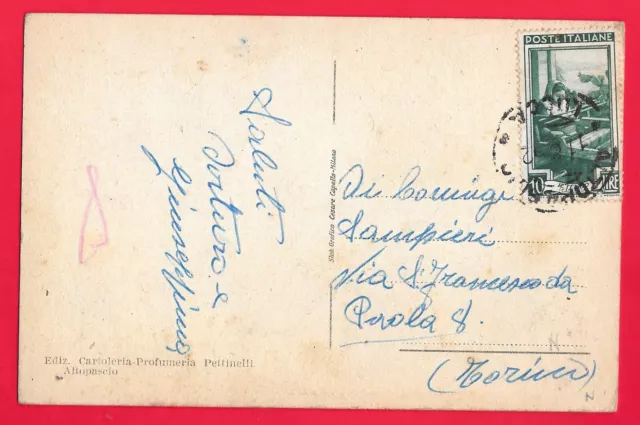 Saluti
Arturo e
Giuseppina
Ediz. Cartoleria-Profumeria Pettinelli
Altopascio
Stab. Grafico Cesare Capello-Milano
POSTE ITALIANE
10 LIRE
LUCCA
Di Comingi
Sampieri
Via S. Francesco da
Paola 8.
(Torino)